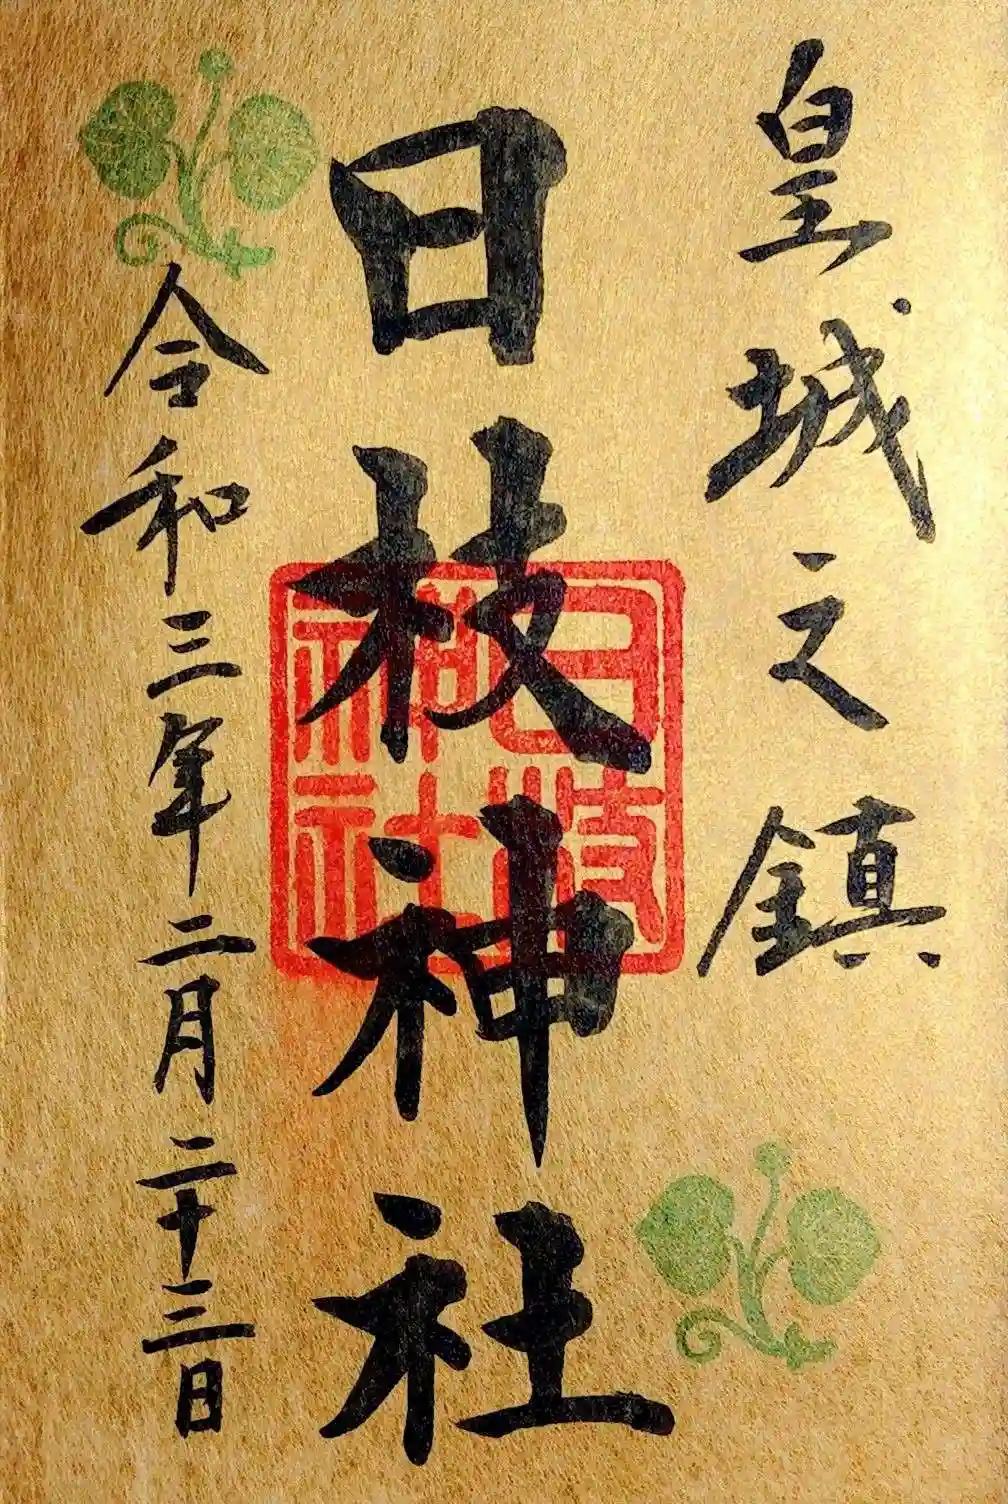 皇城之鎮
日枝神社
日枝神社
令和三年二月二十三日